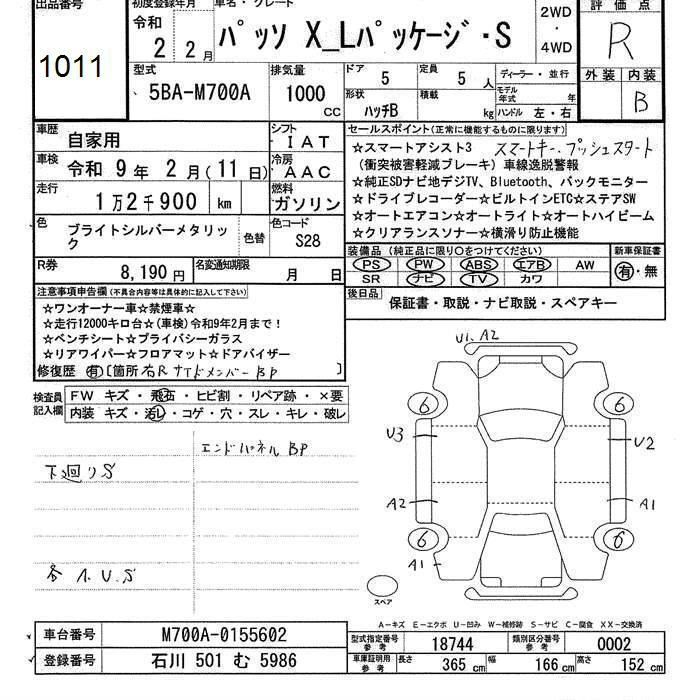 出品番号
1011
初度登録年月
令和
2 2月
車名・グレード
パッソ X_Lパッケージ・S
2WD
・
4WD
評価点
R
型式
5BA-M700A
排気量
1000
CC
ドア
5
定員
5 人
形状
ハッチB
積載
kg
ディーラー・並行
モデル年式 年
ハンドル 左・右
外装 内装
B
車歴
自家用
シフト
IAT
車検
令和 9年 2月(11日)
冷房
AAC
走行
1万2千900 km
燃料
ガソリン
色
ブライトシルバーメタリック
色替
色コード
S28
R券
8,190円
名変通知期限
月 日
セールスポイント(正常に機能するものに限ります)
☆スマートアシスト3 スマートキー、プッシュスタート
(衝突被害軽減ブレーキ)車線逸脱警報
☆純正SDナビ地デジTV、Bluetooth、バックモニター
☆ドライブレコーダー☆ビルトインETC☆ステアSW
☆オートエアコン☆オートライト☆オートハイビーム
☆クリアランスソナー☆横滑り防止機能
装備品(純正品に限り○をつけてください)
PS PW ABS エアB AW
SR ナビ TV カワ
新車保証書
有・無
後日品
保証書・取説・ナビ取説・スペアキー
注意事項申告欄(不具合内容等は具体的に記入して下さい)
☆ワンオーナー車☆禁煙車☆
☆走行12000キロ台☆(車検)令和9年2月まで!
☆ベンチシート☆プライバシーガラス
☆リアワイパー☆フロアマット☆ドアバイザー
修復歴 有[箇所 右Rサイドメンバー BP ]
検査員記入欄
FW キズ・飛石・ヒビ割・リペア跡・×要
内装 キズ・汚レ・コゲ・穴・スレ・キレ・破レ
エンドパネル BP
下廻りS
各 A.U.S
U1、A2
6
6
U3
U2
A2
A1
6
6
A1
スペア
A-キズ E-エクボ U-凹み W-補修跡 S-サビ C-腐食 XX-交換済
車台番号
M700A-0155602
登録番号
石川 501 む 5986
型式指定番号
参考
18744
類別区分番号
参考
0002
車庫証明用
参考
長さ
365 cm
幅
166 cm
高さ
152 cm